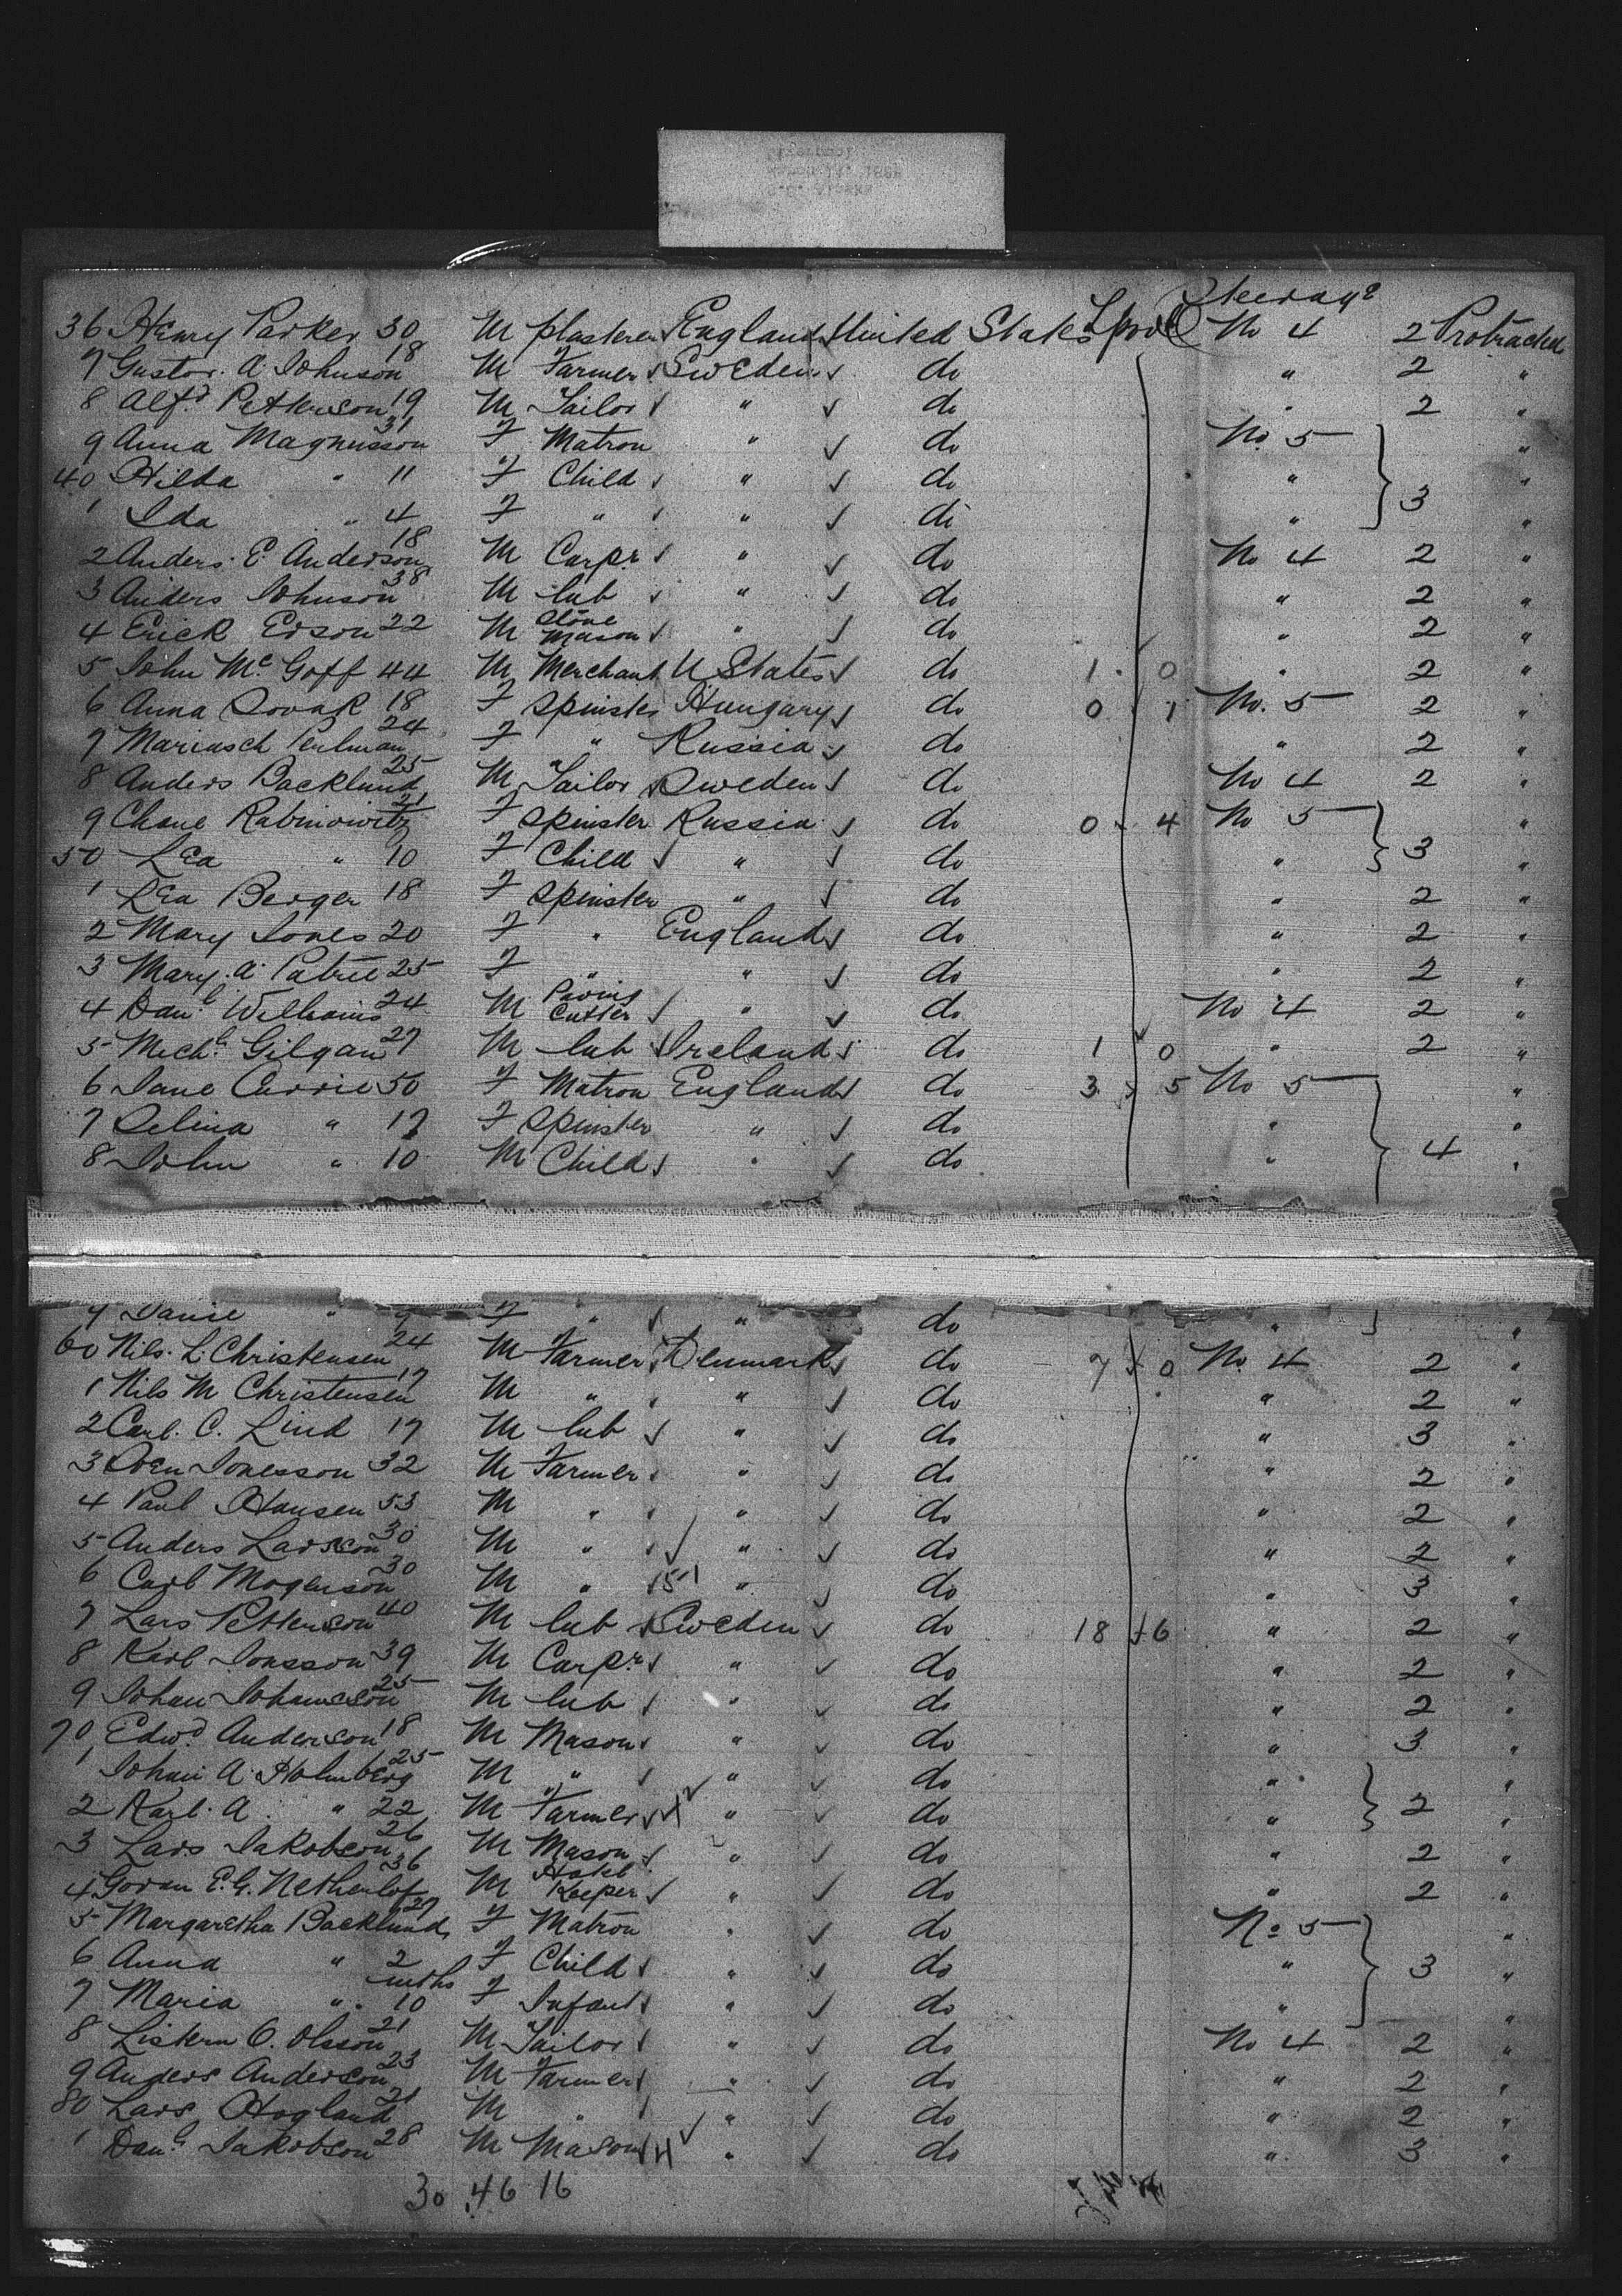 Steerage
36 Henry Parker 30 M plasterer England United States Lpool No 4 2 Protracted
7 Gustov. A. Johnson 18 M Farmer Sweden do " 2 "
8 Alfd Petterson 19 M Tailor " do " 2 "
9 Anna Magnusson 31 F Matron " do No 5 "
40 Hilda " 11 F Child " do " "
1 Ida " 4 F " " do " 3 "
2 Anders. E. Anderson 18 M Carpr " do No 4 2 "
3 Anders Johnson 38 M lab " do " 2 "
4 Erick Erson 22 M Stone Mason " do " 2 "
5 John Mc Goff 44 M Merchant U States do 1 0 " 2 "
6 Anna 18 F Spinster Hungary do 0 1 No. 5 2 "
7 Mariasch Perlman 24 F " Russia do " 2 "
8 Anders Backlund 25 M Tailor Sweden do No 4 2 "
9 Chane Rabinowitz 21 F Spinster Russia do 0 4 No 5 "
50 Lea " 10 F Child " do " 3 "
1 Lea Berger 18 F Spinster " do " 2 "
2 Mary Jones 20 F " England do " 2 "
3 Mary. A. 25 F " " do " 2 "
4 Danl Williams 24 M Paving Cutter " do No 4 2 "
5 Michl Gilgan 27 M lab Ireland do 1 0 " 2 "
6 Jane Currie 50 F Matron England do 3 5 No 5 "
7 Selina " 17 F Spinster " do " "
8 John " 10 M Child " do " 4 "
9 Janie " F " " do " "
60 Nils. L. Christensen 24 M Farmer Denmark do 7 0 No. 4 2 "
1 Nils M Christensen 17 M " " do " 2 "
2 Carl. C. Lind 17 M lab " do " 3 "
3 Sven Jonesson 32 M Farmer " do " 2 "
4 Paul Hansen 53 M " " do " 2 "
5 Anders Larsson 30 M " " do " 2 "
6 Carl Mogenson 30 M " 51 " do " 3 "
7 Lars Petterson 40 M lab Sweden do 18 6 " 2 "
8 Karl Jonsson 39 M Carpr " do " 2 "
9 Johan Johansson 25 M lab " do " 2 "
70 Edwd Anderson 18 M Mason " do " 3 "
1 Johan A. Holmberg 25 M " " do " "
2 Karl. A. " 22 M Farmer " do " 2 "
3 Lars Jakobson 26 M Mason " do " 2 "
4 Goran E. G. 36 M Hotel Keeper " do " 2 "
5 Margaretha Backlund 27 F Matron " do No 5 "
6 Anna " 2 F Child " do " 3 "
7 Maria " mths 10 F Infant " do " "
8 O. Olsson 21 M Tailor " do No 4 2 "
9 Anders Anderson 23 M Farmer " do " 2 "
80 Lars Hogland 21 M " " do " 2 "
1 Danl Jakobson 28 M Mason 4 " do " 3 "
30 46 16